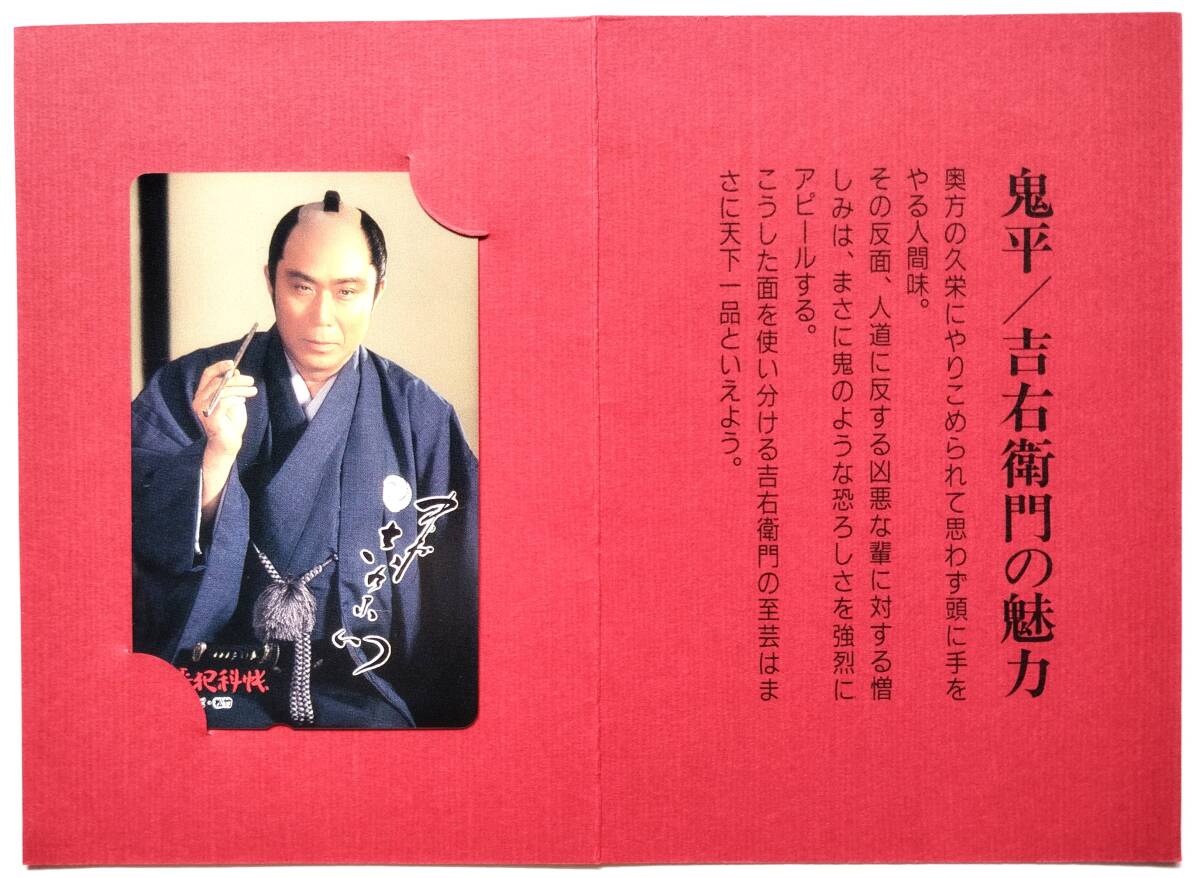 鬼平/吉右衛門の魅力
奥方の久栄にやりこめられて思わず頭に手を
やる人間味。
その反面、人道に反する凶悪な輩に対する憎
しみは、まさに鬼のような恐ろしさを強烈に
アピールする。
こうした面を使い分ける吉右衛門の至芸はま
さに天下一品といえよう。
犯科帳
松竹